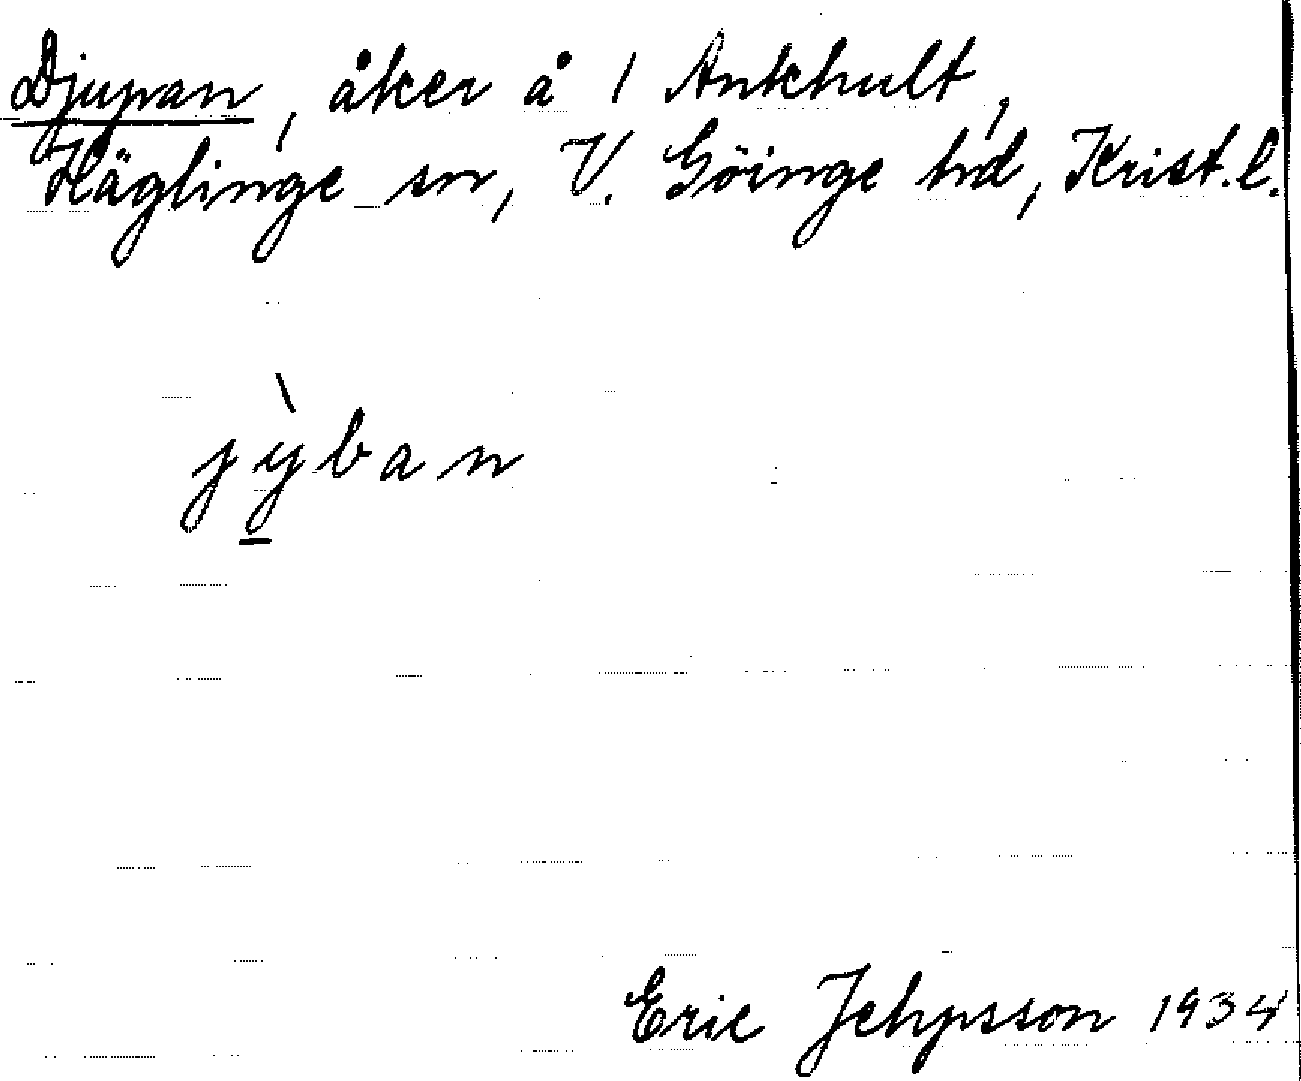 Djupan, åker å 1 Ankhult,
Häglinge sn, V. Göinge hd, Krist.l.
jỳ̠ban
Eric Jehpsson 1934